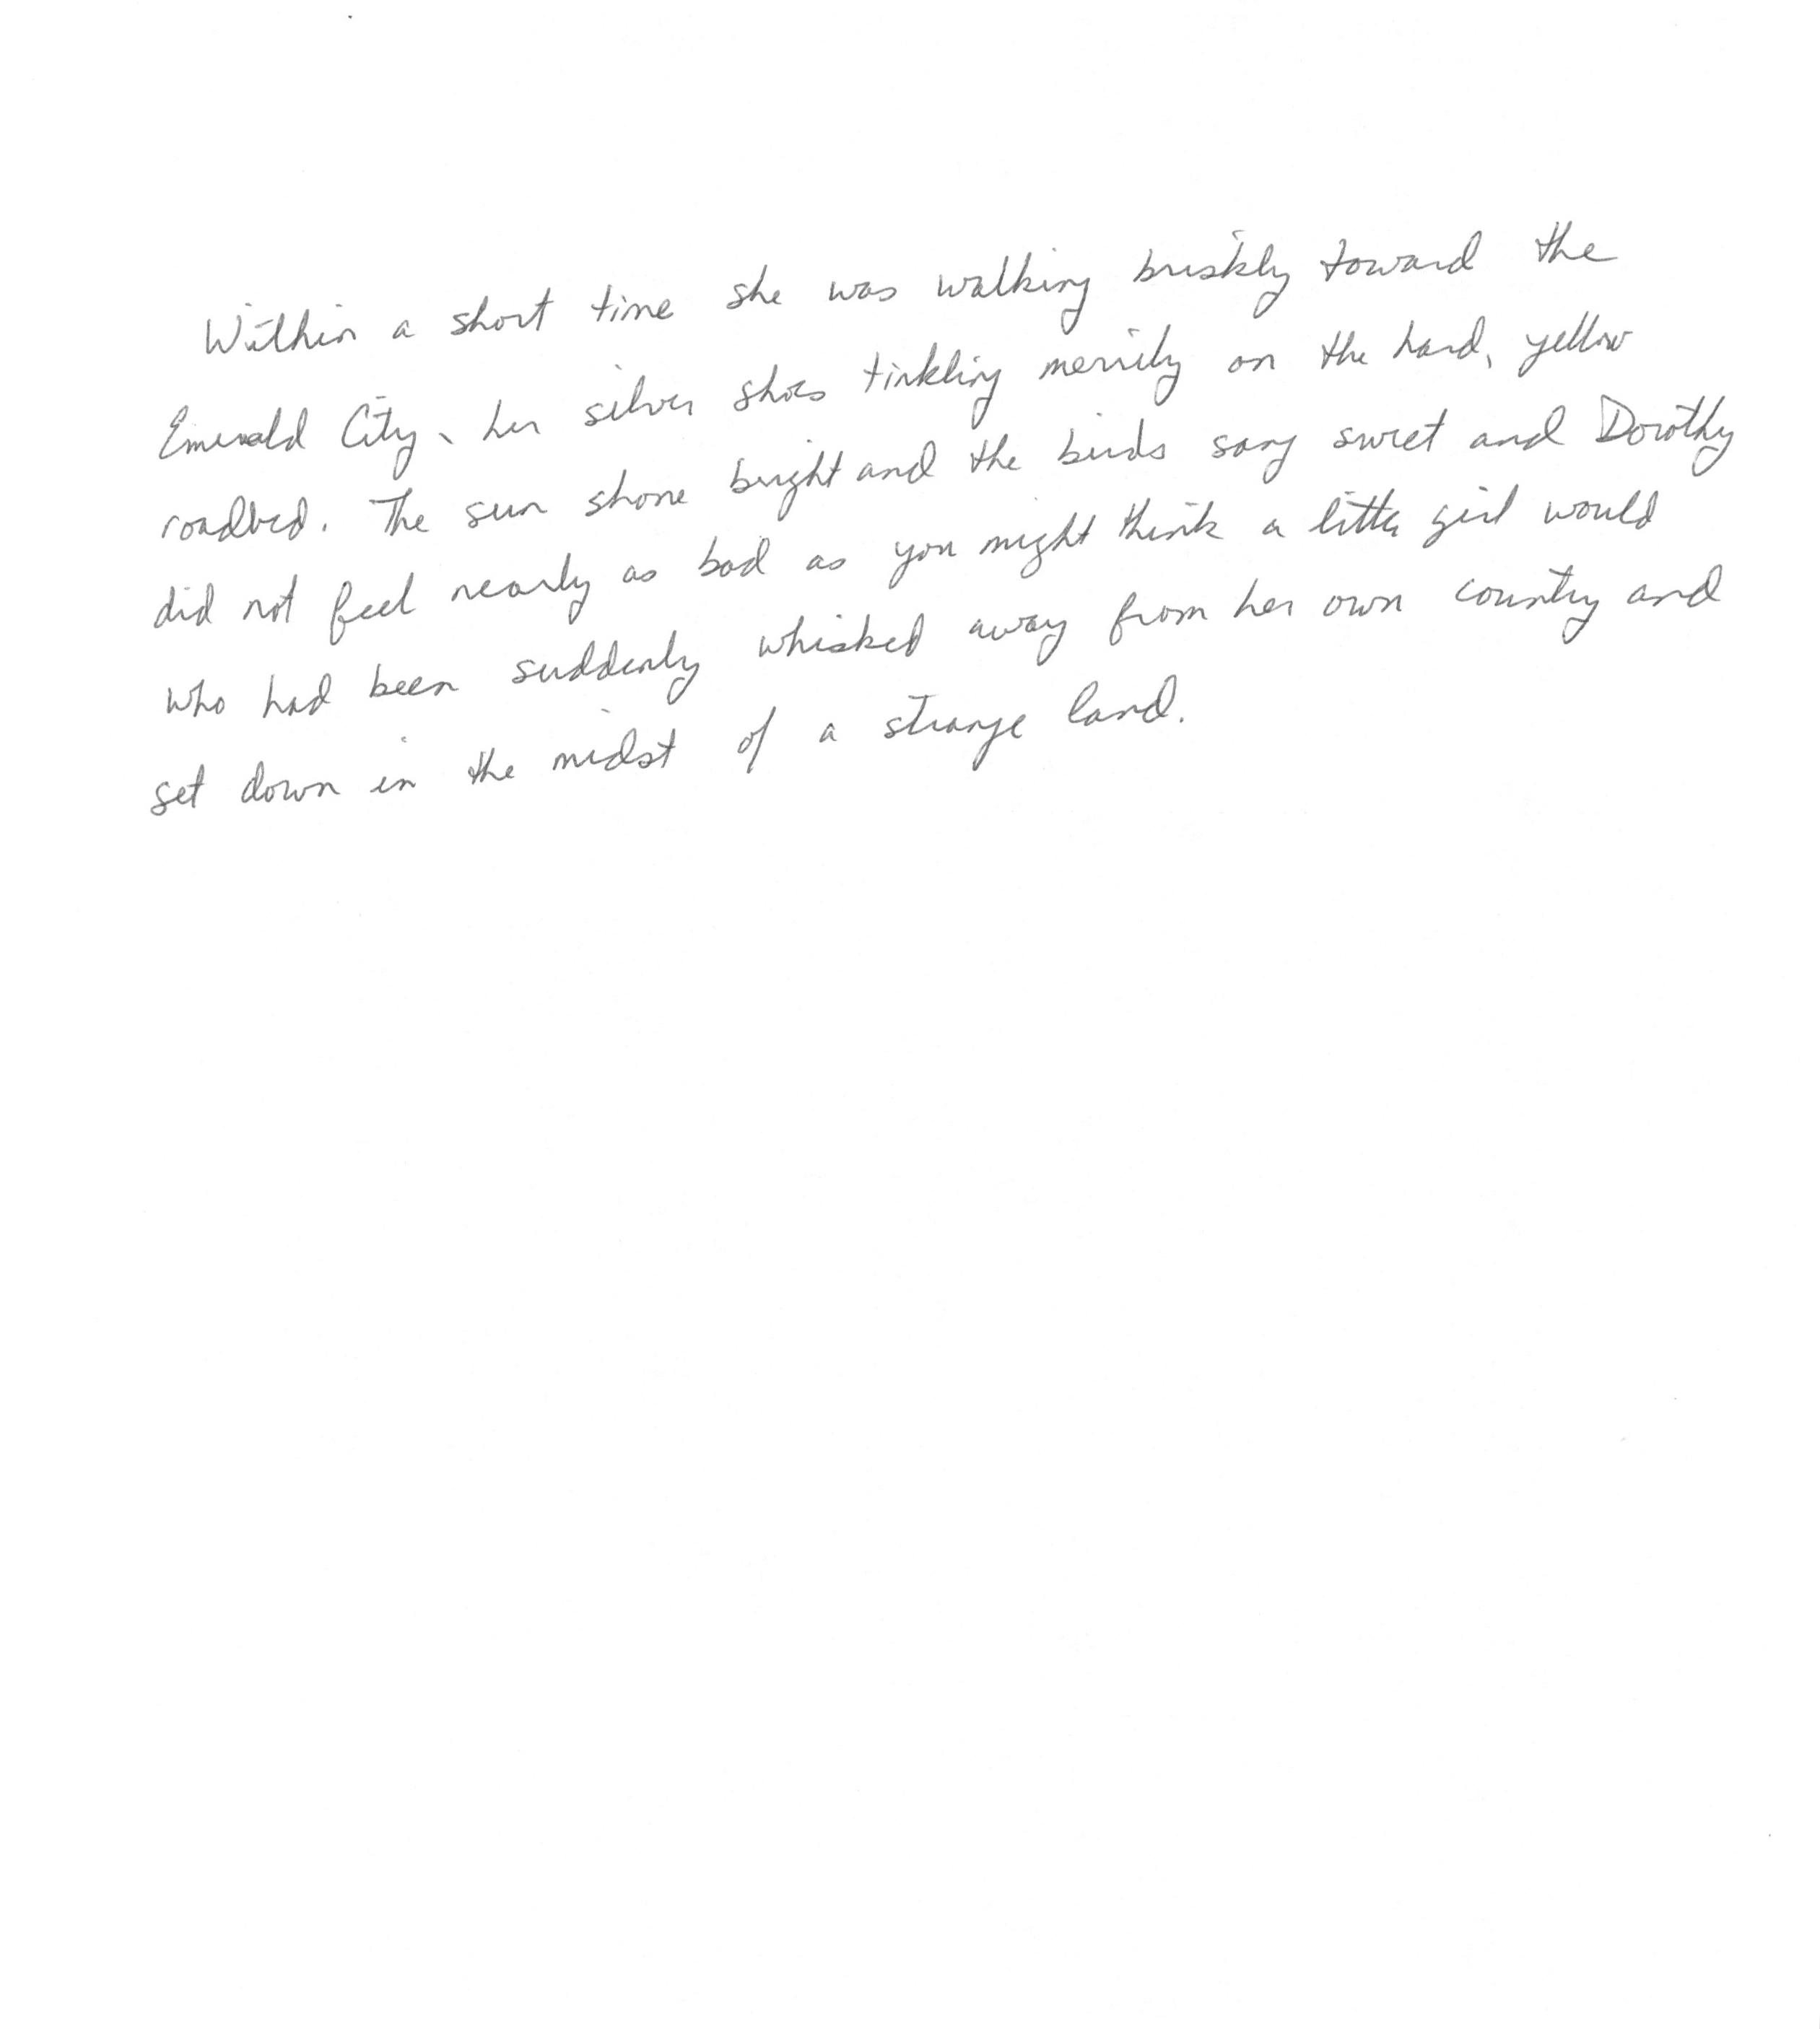 Within a short time she was walking briskly toward the
Emerald City, her silver shoes tinkling merrily on the hard, yellow
roadbed. The sun shone bright and the birds sang sweet and Dorothy
did not feel nearly as bad as you might think a little girl would
who had been suddenly whisked away from her own country and
set down in the midst of a strange land.